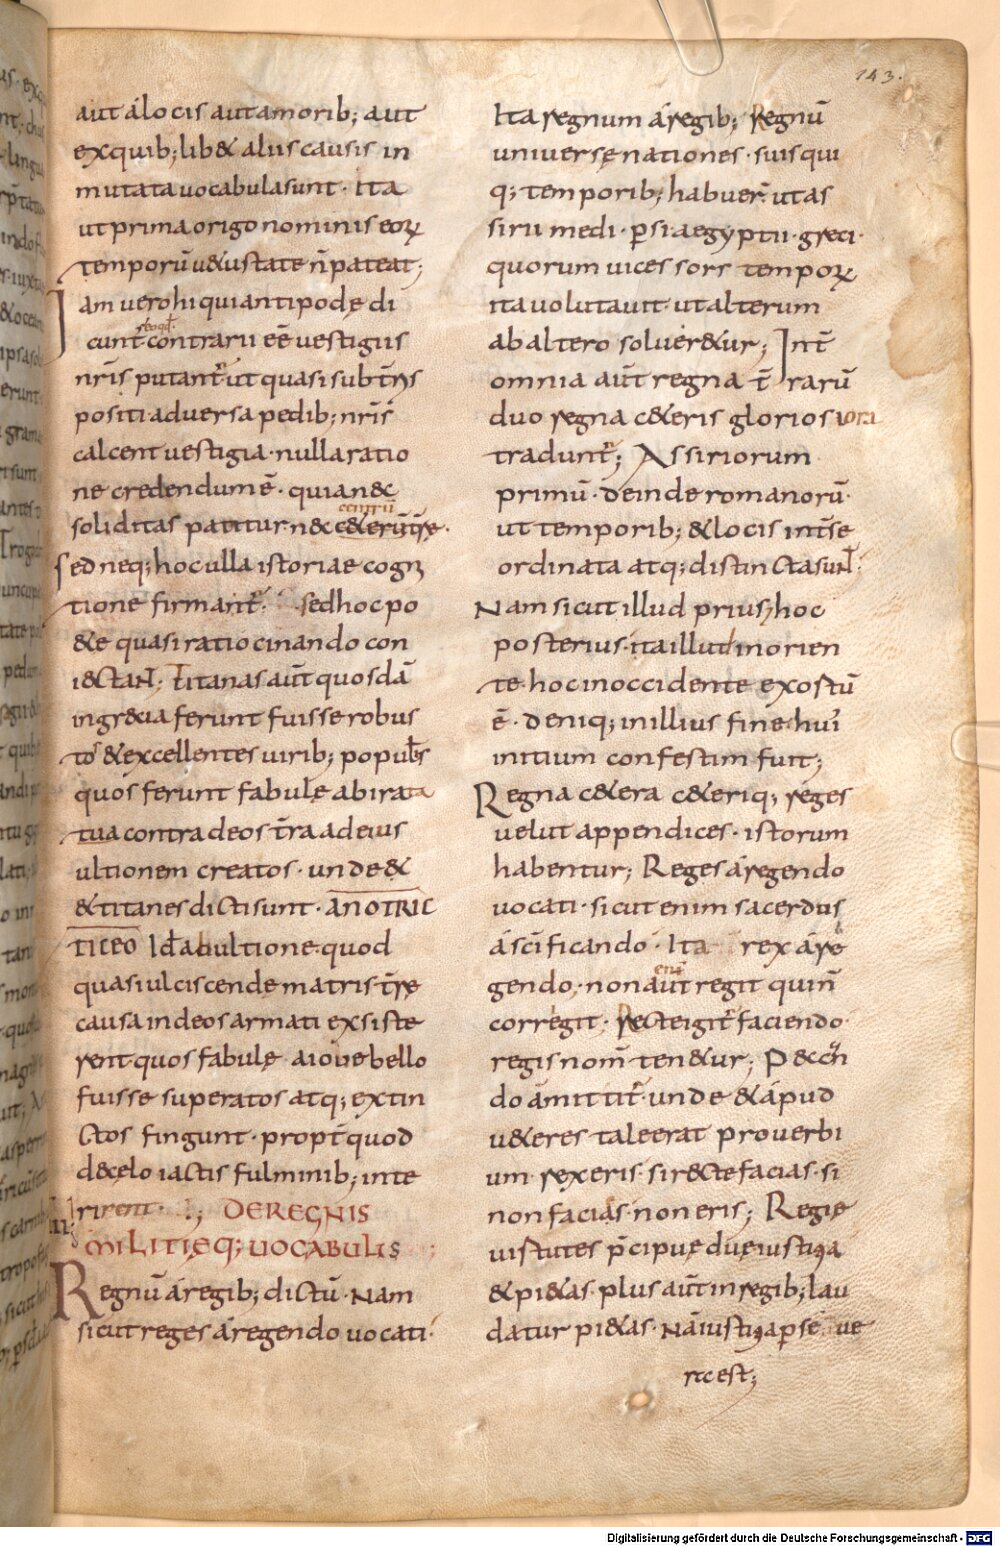 143.
aut a locis aut a morib; aut
ex quib;lib& aliis causis in
mutata uocabula sunt · Ita
ut prima origo nominis eoꝝ
temporū u&ustate n̄ pateat;
Iam uero hi qui antipodę di
cunt contrarii eē uestigiis
nr̄is putant̄ ut quasi sub tr̄is
positi aduersa pedib; nr̄is
calcent uestigia · nulla ratio
ne credendum ē · quia nec
centrū
soliditas patitur nec c&erūtr̄ę ·
Sed neq; hoc ulla istoriae cogni
tione firmant̄ · sed hoc po
&e quasi ratiocinando con
iectant · Titanas aūt quosdā
in grecia ferunt fuisse robus
tos & excellentes uirib; populos
quos ferunt fabulę ab irata
tua contra deos tr̄a ad eius
ultionem creatos · unde &
& titanes dicti sunt · ΑΠΟΤRIC
TICEO Id ab ultione · quod
quasi ulciscende matris tr̄ę
causa in deos armati exsiste
rent quos fabulę a ioue bello
fuisse superatos atq; extin
ctos fingunt · propt̄ quod
de cęlo iactis fulminib; inte
rirent · ; DE REGNIS
MILITIĘQ; UOCABULIS ;
III
Regnū a regib; dictū · Nam
sicut reges a regendo uocati ·
Ita regnum a regib; Regnū
uniuersę nationes · suis qui
q; temporib; habuer̄ · ut as
sirii medi · ꝑsi aegyptii · greci ·
quorum uices sors temporꝝ
ita uolutauit · ut alterum
ab altero soluer&ur; Int̄
omnia aūt regna t̄rarū
duo regna c&eris gloriosiora
tradunt̄; Assiriorum
primū · deinde romanorū ·
ut temporib; & locis int̄ se
ordinata atq; distincta sunt ·
Nam sicut illud prius, hoc
posterius · ita illud in orien
te · hoc in occidente exostū
ē · deniq; in illius fine hui'
initium confestim fuit;
Regna c&era c&eriq; reges
uelut appendices · istorum
habentur; Reges a regendo
uocati · sicut enim sacerdos
a scificando · Ita rex a re
eni
gendo · non aūt regit qui n̄
corregit · Recte igit̄ faciendo
regis nom̄ ten&ur; Peccn
do amittit̄ · unde & apud
u&eres tale erat prouerbi
um · rex eris · si recte facias · si
non facias · non eris; Regię
uirtutes p̄cipuę duę iustitia
& pi&as · plus aūt in regib; lau
datur pi&as · Nā iustitia per se · ue
re est;
Digitalisierung gefördert durch die Deutsche Forschungsgemeinschaft - DFG